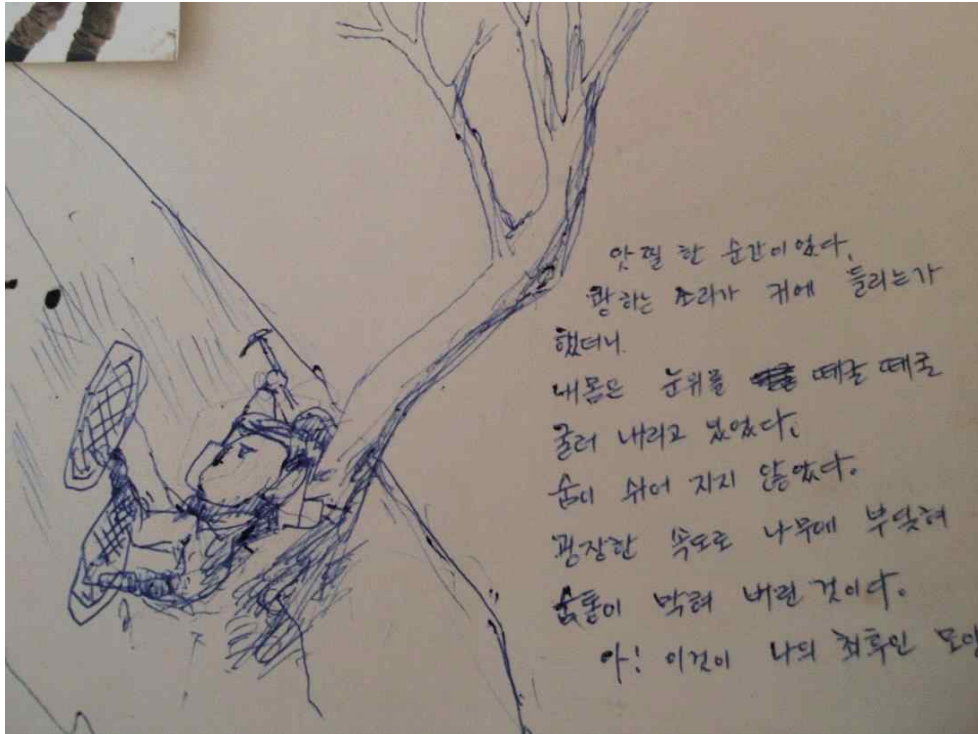 앗찔한 순간이었다.
쾅하는 소리가 귀에 들리는가
했더니
내몸은 눈위를 떼굴 떼굴
굴러 내리고 있었다.
숨이 쉬어 지지 않았다.
굉장한 속도로 나무에 부딪혀
숨통이 막혀 버린 것이다.
아! 이것이 나의 최후인 모양